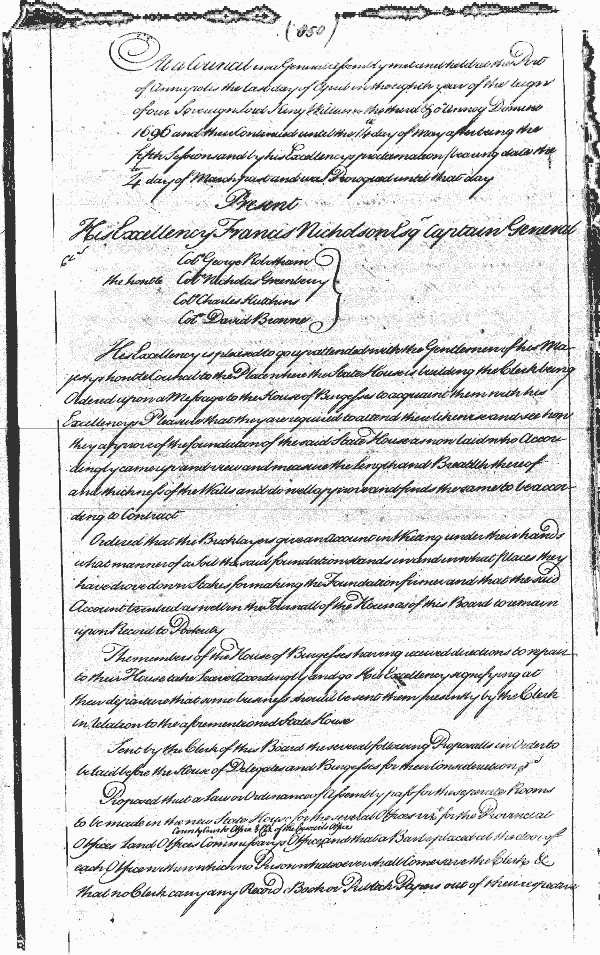 (850)
At a Council and Generall Assembly met and held at the Port
of Annapolis the last day of Aprill in the eighth year of the reign
of our Sovereign Lord King William the third &c Annoq Domini
1696 and then Continued untill the 14th day of May after being the
fifth Session and by his Excellencys proclamation bearing date the
4th day of March past and was Prorogued untill that day
Present
His Excellency Francis Nicholson Esqr Captain General
&ca
Colo George Robotham
the honble Colo Nicholas Greenbery
Colo Charles Hutchins
Colo David Browne
His Excellency is pleased to go up attended with the Gentlemen of his Ma-
jestys honble Council to the Place where the State House is building the Clerk being
Ordered upon a Message to the House of Burgesses to acquaint them with his
Excellencys Pleasure that they are required to attend there likewise and see how
they approve of the foundation of the said State House as now laid who Accor-
dingly came up and view and measure the Length and Breadth thereof
and thickness of the Walls and do well approve and finds the same to be accor-
ding to Contract
Ordered that the Bricklayers give an Account in Writeing under their hands
what manner of a Soil the said foundation stands in and in what places they
have drove down Stakes for making the Foundation firmer and that the said
Account be entred as well in the Journall of the House as of this Board to remain
upon Record to Posterity
The members of the House of Burgesses having received directions to repair
to their House take Leave Accordingly and go His Excellency signifying at
their departure that some business should be sent them presently by the Clerk
in relation to the aforementioned State House
Sent by the Clerk of this Board the several following Proposalls in Order to
be laid before the House of Delegates and Burgesses for their Consideration
Proposed that a Law or Ordinance of Assembly pass for the seperate Rooms
to be made in the new State House for the several Offices vizt for the Provincial
County Courts Office & Clk of the Councils Office
Offices Land Offices Commissarys Office and that a Bar be placed at the door of
each Office within which no Person whatsoever shall Come save the Clerk &
that no Clerk carry any Record Book or Publick Papers out of their respective